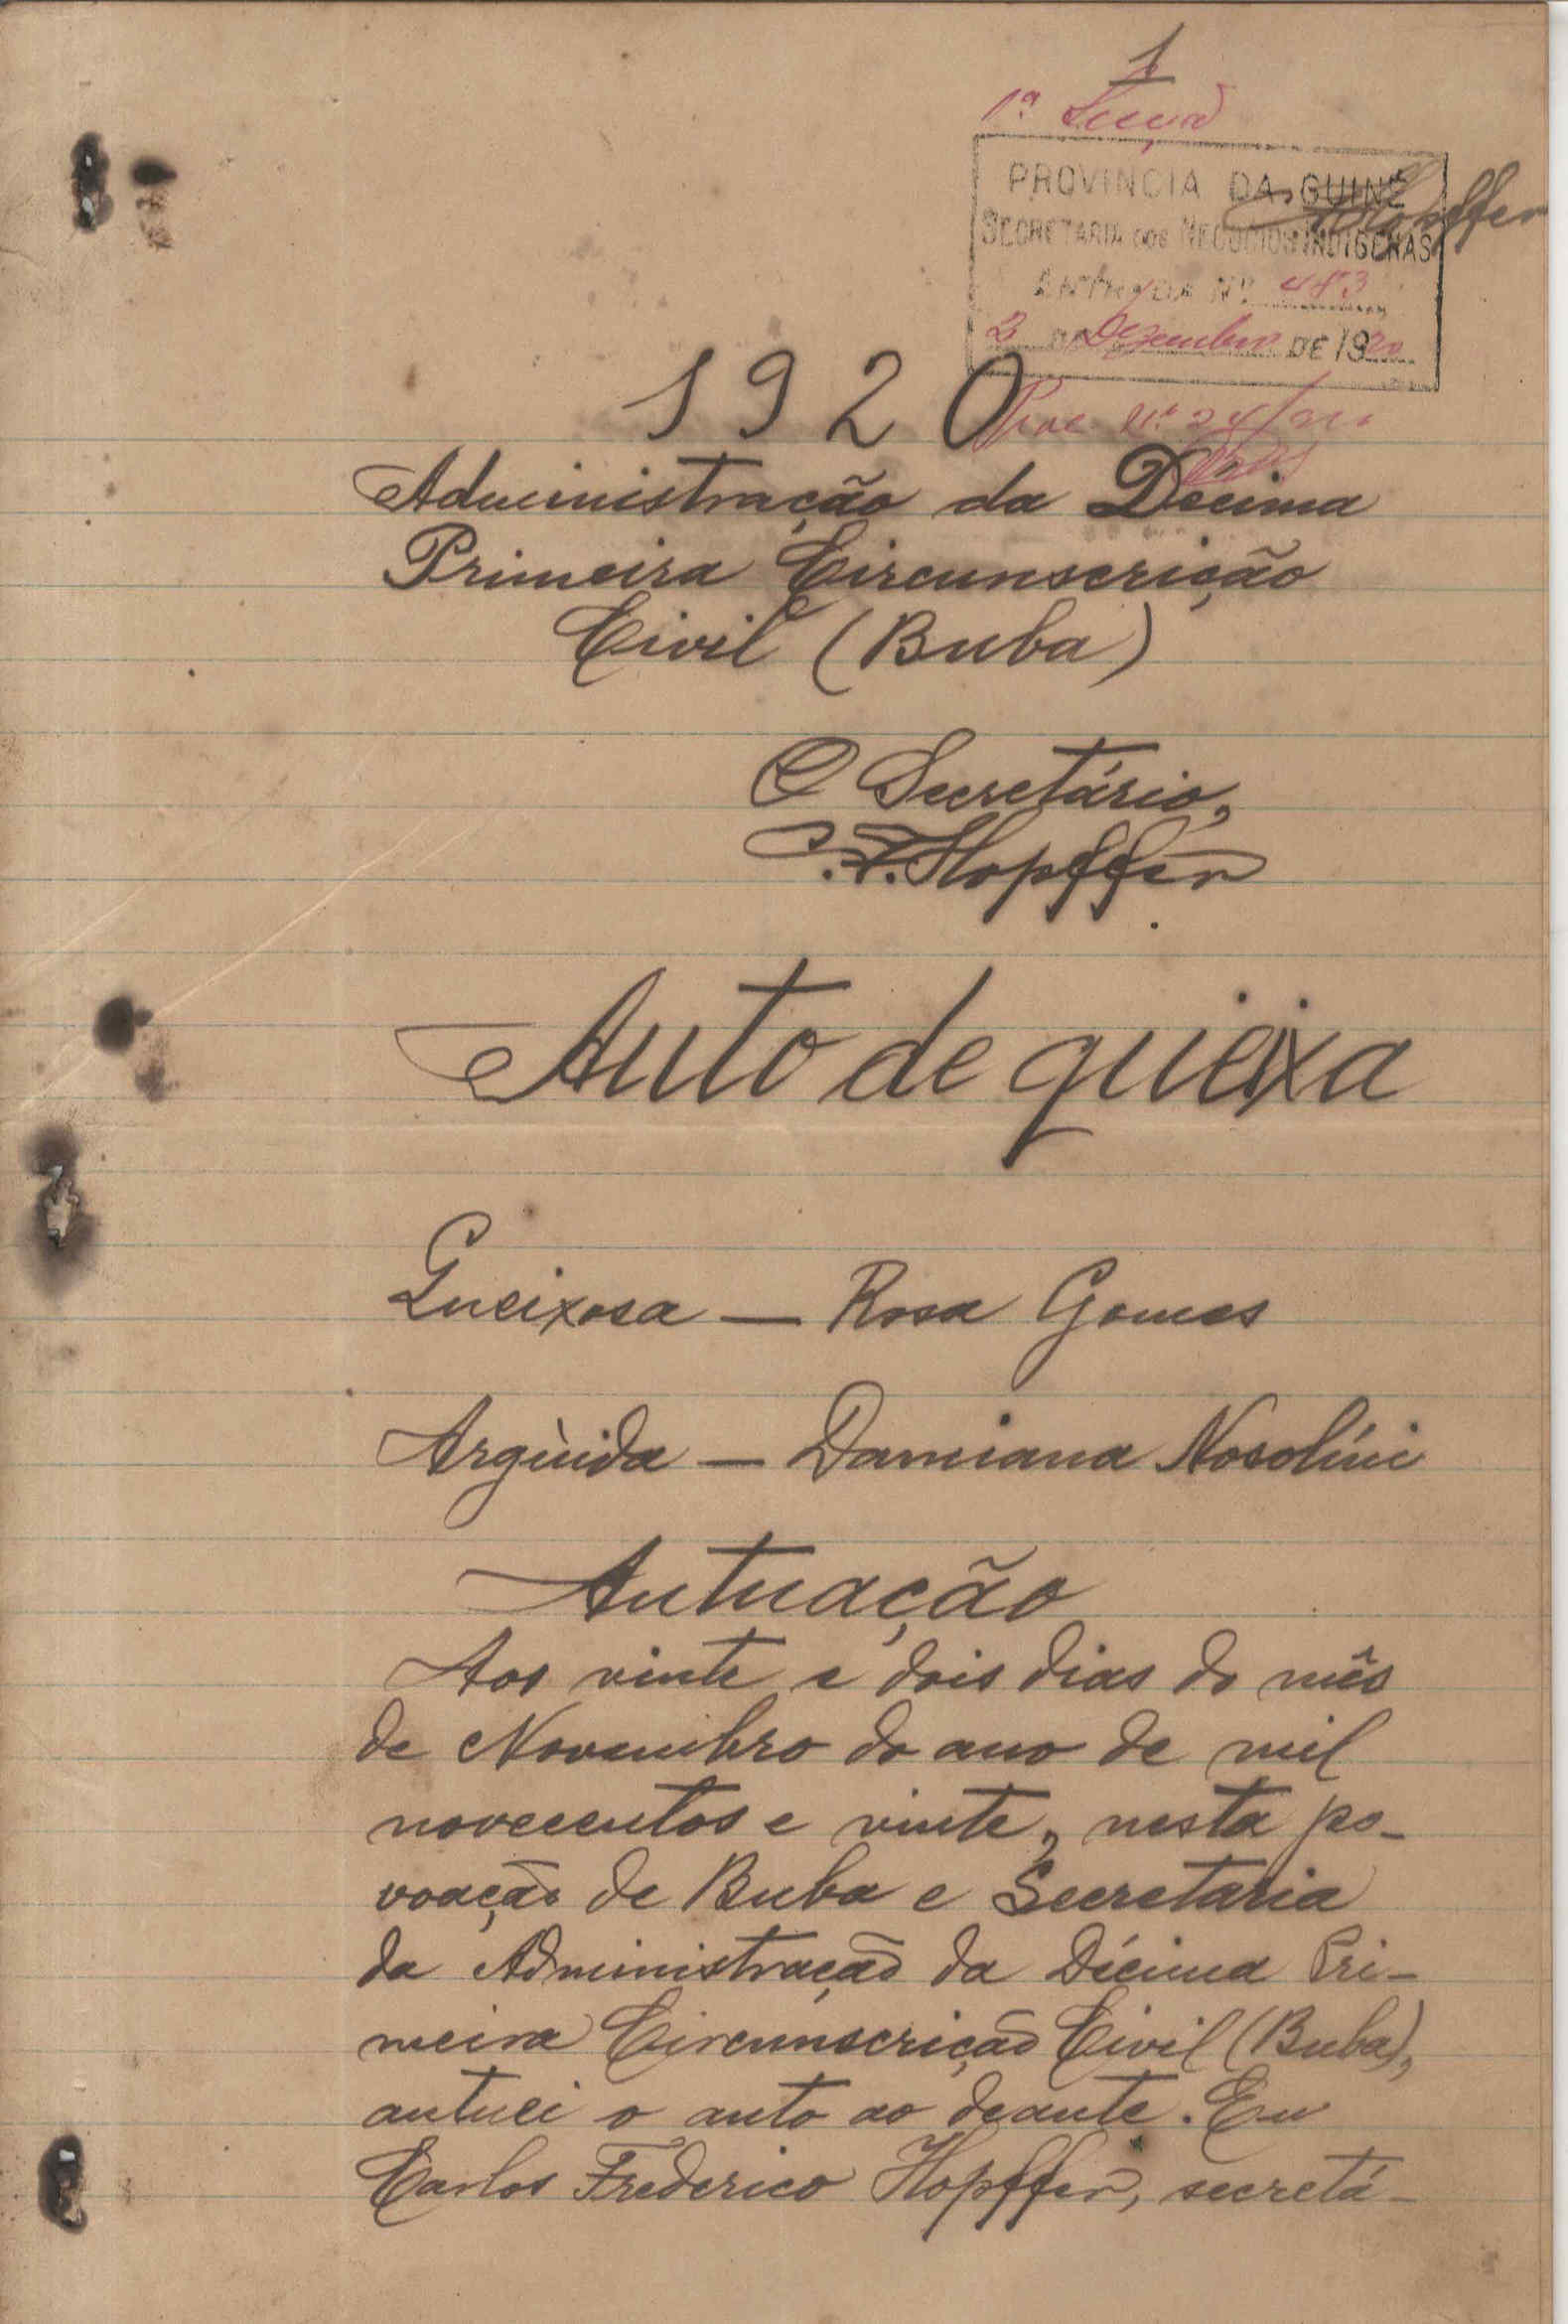 1
1ª Secção
PROVINCIA DA GUINÉ
Hopffer
SECRETARIA DOS NEGOCIOS INDIGENAS
ENTRADA Nº 483
2 DE Dezembro DE 1920
1920
Proc. nº 24/920
Administração da Decima
Primeira Circunscrição
Civil (Buba)
O Secretário,
C.F. Hopffer
Auto de queixa
Queixosa — Rosa Gomes
Argùida — Damiana Nosolíni
Autuação
Aos vinte e dois dias do mês
de Novembro do ano de mil
novecentos e vinte, nesta po-
voação de Buba e Secretaria
da Administração da Décima Pri-
meira Circunscrição Civil (Buba),
autuei o auto ao deante. Eu
Carlos Frederico Hopffer, secretá-